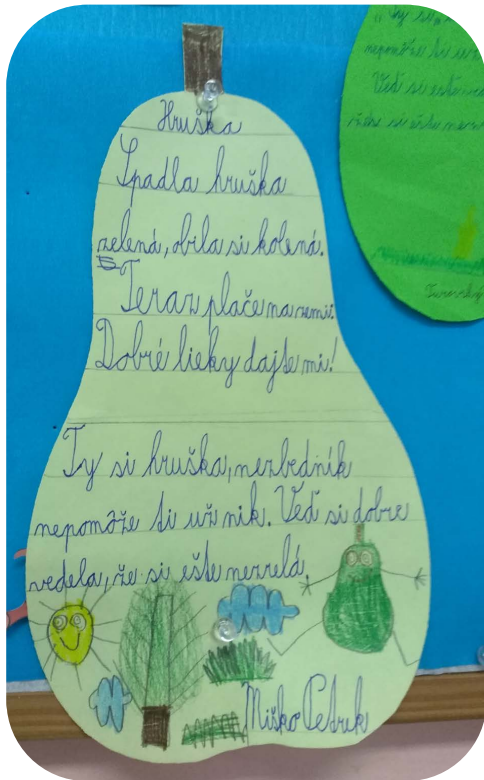 Hruška
Spadla hruška
zelená, obila si kolená.
Teraz plače na zemi:
Dobré lieky dajte mi!
Ty si hruška, nezbedník
nepomôže ti už nik. Veď si dobre
vedela, že si ešte nezrelá.
Miško Petruk
"Ty si
nepomôže ti už
Veď si
že si ešte